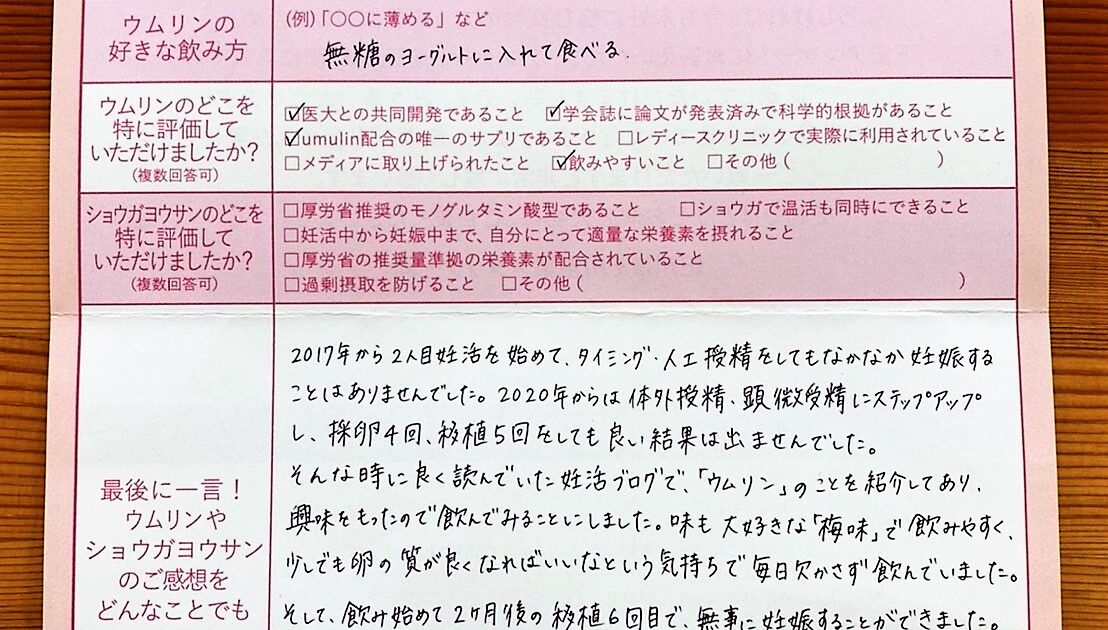 ウムリンの
好きな飲み方
(例)「〇〇に薄める」など
無糖のヨーグルトに入れて食べる.
ウムリンのどこを
特に評価して
いただけましたか?
(複数回答可)
☑医大との共同開発であること ☑学会誌に論文が発表済みで科学的根拠があること
☑umulin配合の唯一のサプリであること □レディースクリニックで実際に利用されていること
□メディアに取り上げられたこと ☑飲みやすいこと □その他( )
ショウガヨウサンのどこを
特に評価して
いただけましたか?
(複数回答可)
□厚労省推奨のモノグルタミン酸型であること □ショウガで温活も同時にできること
□妊活中から妊娠中まで、自分にとって適量な栄養素を摂れること
□厚労省の推奨量準拠の栄養素が配合されていること
□過剰摂取を防げること □その他( )
最後に一言!
ウムリンや
ショウガヨウサン
のご感想を
どんなことでも
2017年から2人目妊活を始めて、タイミング・人工授精をしてもなかなか妊娠する
ことはありませんでした。2020年からは体外授精、顕微受精にステップアップ
し、採卵4回、移植5回をしても良い結果は出ませんでした。
そんな時に良く読んでいた妊活ブログで、「ウムリン」のことを紹介してあり、
興味をもったので飲んでみることにしました。味も大好きな「梅味」で飲みやすく、
少しでも卵の質が良くなればいいなという気持ちで毎日欠かさず飲んでいました。
そして、飲み始めて2ヶ月後の移植6回目で、無事に妊娠することができました。